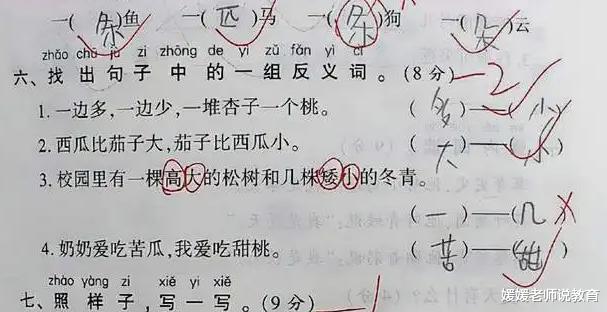 一(条)鱼 一(匹)马 一(条)狗 一(朵)云
zhǎo chū jù zi zhōng de yì zǔ fǎn yì cí
六、找出句子中的一组反义词。(8分) -2
1.一边多,一边少,一堆杏子一个桃。 (多)——(少)
2.西瓜比茄子大,茄子比西瓜小。 (大)——(小)
3.校园里有一棵高大的松树和几株矮小的冬青。
(一)——(几)
4.奶奶爱吃苦瓜,我爱吃甜桃。 (苦)——(甜)
zhào yàng zi xiě yi xiě
七、照样子,写一写。(9分) -1
媛媛老师说教育